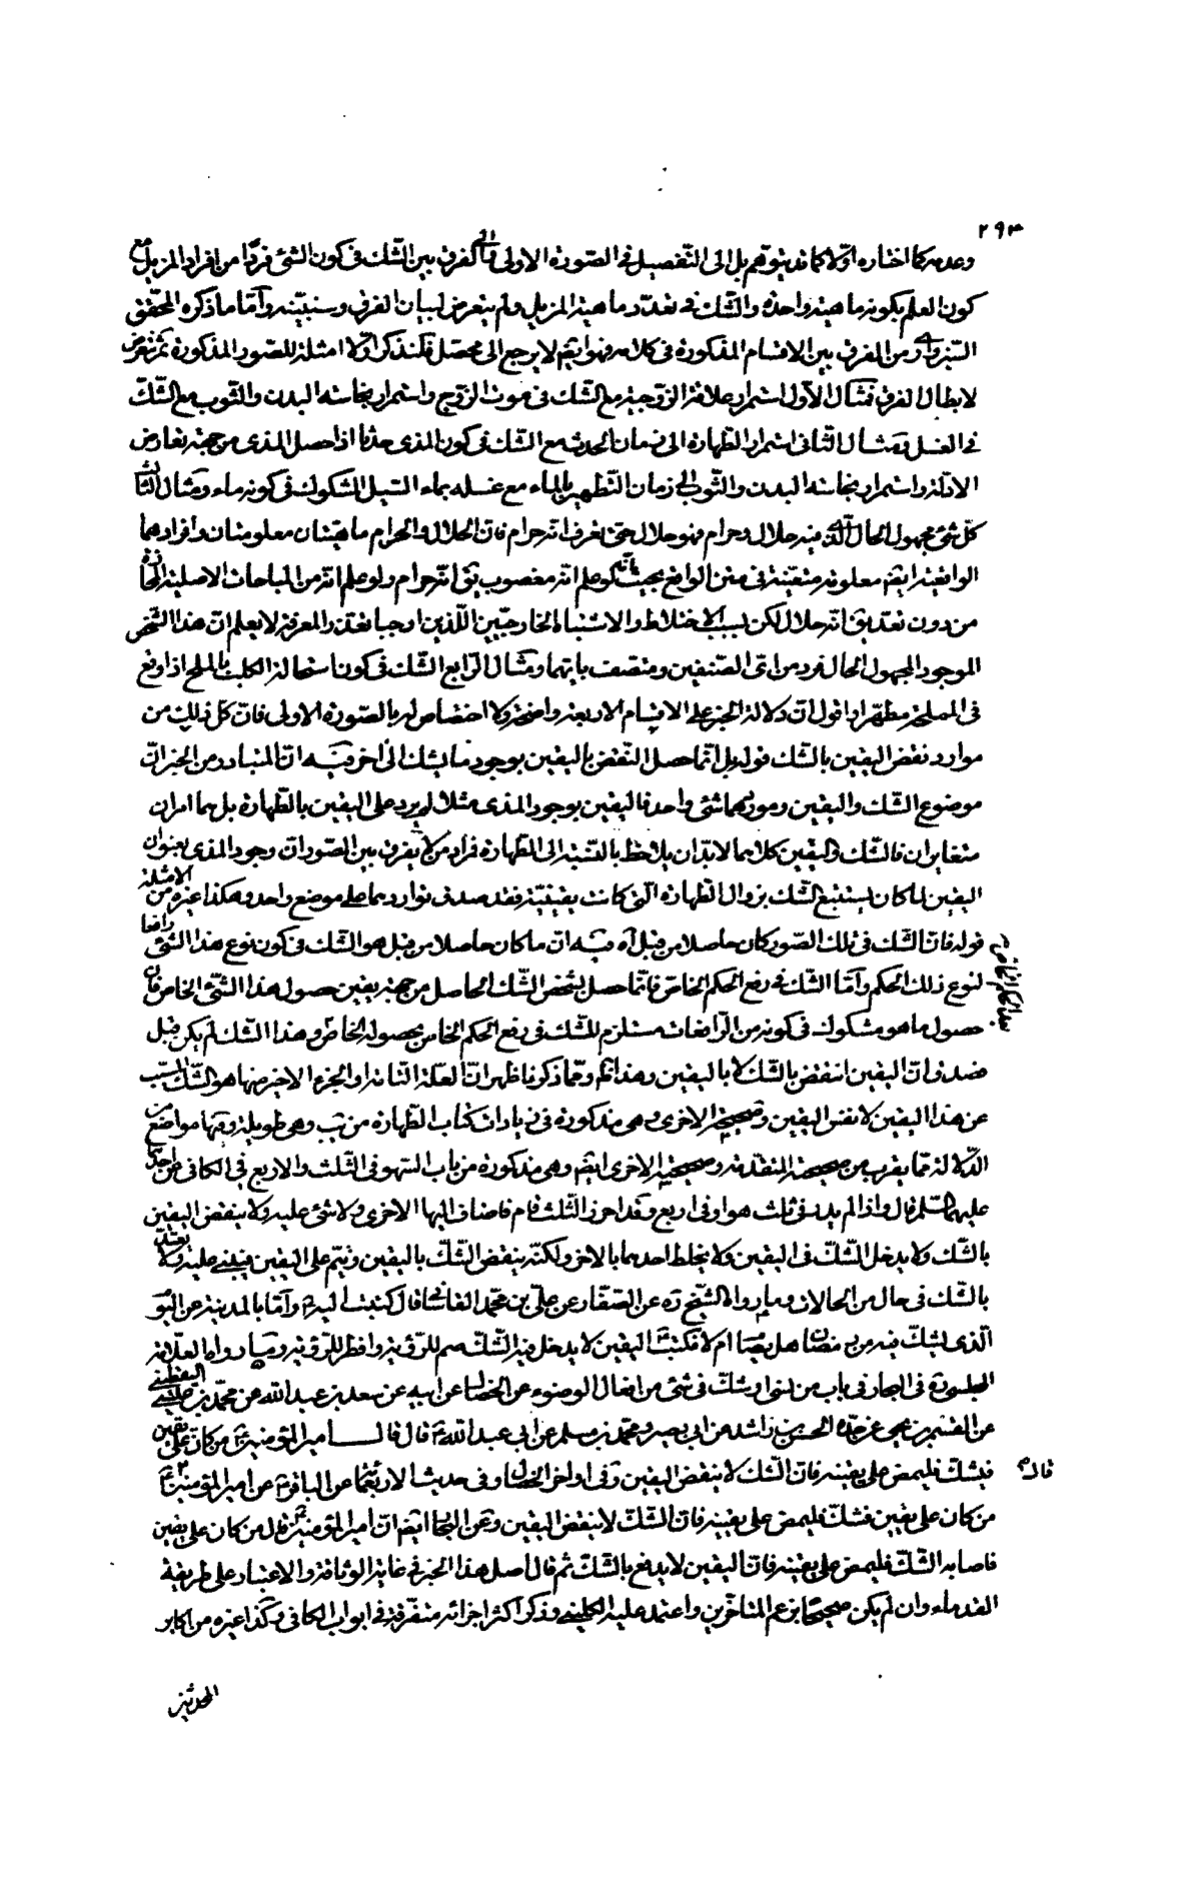 ٢٩٣
وعدمه كما اختاره اولا كما قد يتوهم بل الى التفصيل في الصورة الاولى والى الفرق بين الشك في كون الشئ فردا من افراد المزيل مع
كون العلم بكونه ماهية واحدة والشك في تعدد ماهية المزيل ولم يتعرض لبيان الفرق وسنبينه واما ما ذكره المحقق
السبزوارى من الفرق بين الاقسام المذكورة في كلامه فهو ايضا لا يرجع الى محصل فلنذكر اولا امثلة للصور المذكورة ثم نتعرض
لابطال الفرق فمثال الاول استمرار علاقة الزوجية مع الشك في موت الزوج واستمرار نجاسة البدن والثوب مع الشك
في الغسل ومثال الثانى استمرار الطهارة الى زمان الحدث مع الشك في كون المذى حدثا اذا حصل المذى من جهة تعارض
الادلة واستمرار نجاسة البدن والثوب الى زمان التطهير بالماء مع غسله بماء السيل المشكوك في كونه ماء ومثال الثالث
كل شئ مجهول الحال الذى فيه حلال وحرام فهو حلال حتى تعرف انه حرام فان الحلال والحرام ماهيتان معلومتان وافرادهما
الواقعية ايضا معلومة متعينة في متن الواقع بحيث لو علم انه مغصوب يق انه حرام ولو علم انه من المباحات الاصلية
من دون تعد يق انه حلال لكن بسبب الاختلاط والاشتباه الخارجيين اللذين اوجبا تعذر المعرفة لا يعلم ان هذا الشخص
الموجود المجهول الحال فرد من اى الصنفين ومتصف بايهما ومثال الرابع الشك في كون استحالة الكلب بالملح اذا وقع
في المملحة مطهرا اقول ان دلالة الخبر على الاقسام الاربعة واضحة ولا اختصاص له بالصورة الاولى فان كل ذلك من
موارد نقض اليقين بالشك قوله بل انما حصل النقض باليقين بوجود ما يشك الى اخر فيه ان المتبادر من الخبر ان
موضوع الشك واليقين وموردهما شئ واحد فاليقين بوجود المذى مثلا لم يرد على اليقين بالطهارة بل هما امران
متغايران فالشك واليقين كلاهما لابد ان يلاحظ بالنسبة الى الطهارة فراد من لا يفرق بين الصور ان وجود المذى بعنوان
اليقين لما كان يستتبع الشك بزوال الطهارة التى كانت يقينية فقد صدق تواردهما على موضع واحد وهكذا غيره من الامثلة
قوله فان الشك في تلك الصور كان حاصلا من قبل آه فيه ان ما كان حاصلا من قبل هو الشك في كون نوع هذا الشئ رافعا
لنوع ذلك الحكم واما الشك في رفع الحكم الخاص فانما حصل بشخص الشك الحاصل من جهة يقين حصول هذا الشئ الخاص فان
حصول ما هو مشكوك في كونه من الرافعات مستلزم للشك في رفع الحكم الخاص بحصوله الخاص وهذا الشك لم يكن قبل
فصدق ان اليقين انتقض بالشك لا باليقين وهذا تم ومما ذكرنا ظهر ان العلة التامة او الجزء الاخير منها هو الشك المسبب
عن هذا اليقين لا نفس اليقين وصحيحته الاخرى وهى مذكورة في زيادات كتاب الطهارة من يب وهى طويلة وفيها مواضع من
الدلالة مما يقرب من صحيحته المتقدمة وصحيحته الاخرى ايضا وهى مذكورة من باب السهو في الثلث والاربع في الكافي عن احدهما
عليهما السلم قال واذا لم يدر في ثلث هو او في اربع وقد احرز الثلث قام فاضاف اليها الاخرى ولا شئ عليه ولا ينقض اليقين
بالشك ولا يدخل الشك في اليقين ولا يخلط احدهما بالاخر ولكنه ينقض الشك باليقين ويتم على اليقين فيبنى عليه ولا يعتد
بالشك في حال من الحالات وما رواه الشيخ ره عن الصفار عن على بن محمد القاسانى قال كتبت اليه وانا بالمدينة عن اليوم
الذى يشك فيه من رمضان هل يصام ام لا فكتب اليقين لا يدخل فيه الشك صم للرؤية وافطر للرؤية وما رواه العلامة
المجلسى ره في البحار في باب من نسى او شك في شئ من افعال الوضوء عن الخصال عن ابيه عن سعد بن عبد الله عن محمد بن عيسى اليقطينى
عن القسم بن يحيى عن جده الحسن بن راشد عن ابى بصير ومحمد بن مسلم عن ابى عبد الله ع قال قال امير المؤمنين ع من كان على يقين
فيشك فليمض على يقينه فان الشك لا ينقض اليقين وفي اواخر الخصال وفي حديث الاربعمائة عن الباقر ع عن امير المؤمنين ع قال
من كان على يقين فشك فليمض على يقينه فان الشك لا ينقض اليقين وعن البحار ايضا ان امير المؤمنين ع قال من كان على يقين
فاصابه الشك فليمض على يقينه فان اليقين لا يدفع بالشك ثم قال اصل هذا الخبر في غاية الوثاقة والاعتبار على طريقة
القدماء وان لم يكن صحيحا بزعم المتاخرين واعتمد عليه الكلينى وذكر اكثر اجزائه متفرقة في ابواب الكافى وكذا غيره من اكابر
المحدثين